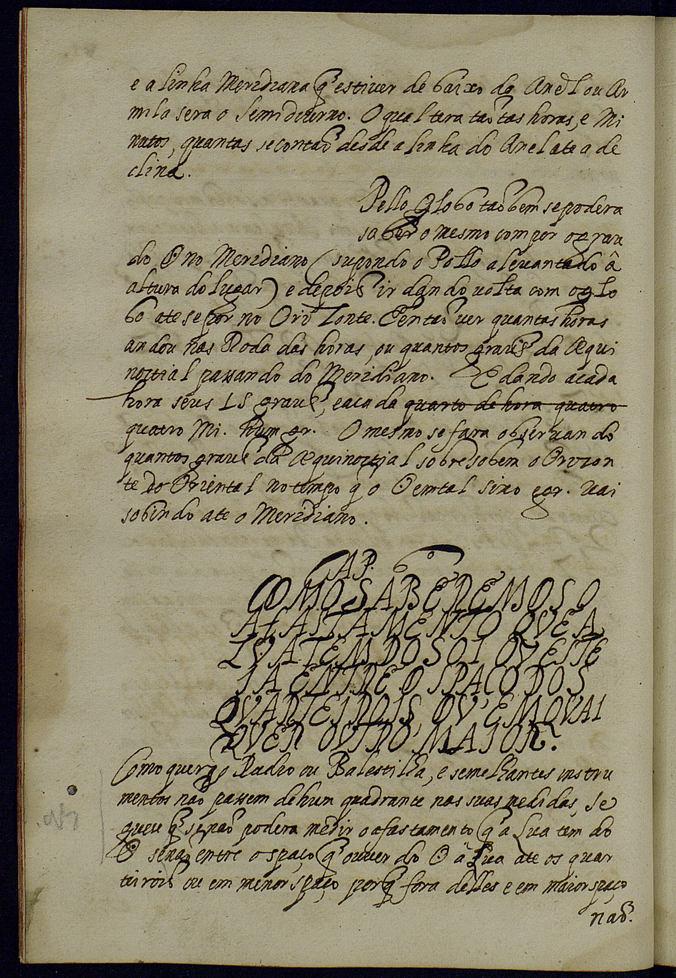 e a linha Meridiana q̃ estiuer de baixo do Anel ou Ar
mila sera o semidiurno. O qual tera tañtas horas, e Mi
nutos, quantas se contaõ desde a linha do Anel ate a de
clina.
Pello Globo taõbem se podera
saber o mesmo com por o grau
do ʘ no Meridiano (supondo o Pollo aleuantado â
altura do lugar) e depois ir dando volta com o glo
bo ate se por no Orizonte. E entaõ ver quantas horas
andou nas Roda das horas, ou quantos graus da Æqui
noctial passando do Meridiano. E dando acada
hora seus 15 graus, e acada quarto de hora quatro
quatro Mi. hum gr. O mesmo se fara obseruando
quantos graus da Æquinoctial sobre sobem o Orozon
te do Oriental no tempo q̃ o gr. uai
sobindo ate o Meridiano.
CAP. 6º
COMO SABEREMOS O
AFASTAMENTO QVE A
LVA TEM DO SOL QVE ESTE
IA ENTRE O SPAÇO DOS
QVARTEIROIS, OV EM QVAL
QVER OVTRO MAIOR.
Como quer q̃ o Radio ou Balestilha, e semelhantes instru
mentos naõ passem de hum quadrante nas suas medidas, se
gueçe q̃ se naõ podera medir o afastamento q̃ a Lua tem do
ʘ senaõ entre o spaço q̃ ouuer do ʘ â Lua ate os quar
teirois ou em menor spaço porq̃ fora delles e em maior spaço
naõ.